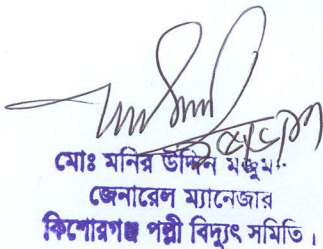 মোঃ মনির উদ্দিন মজুম
জেনারেল ম্যানেজার
কিশোরগঞ্জ পল্লী বিদ্যুৎ সমিতি।